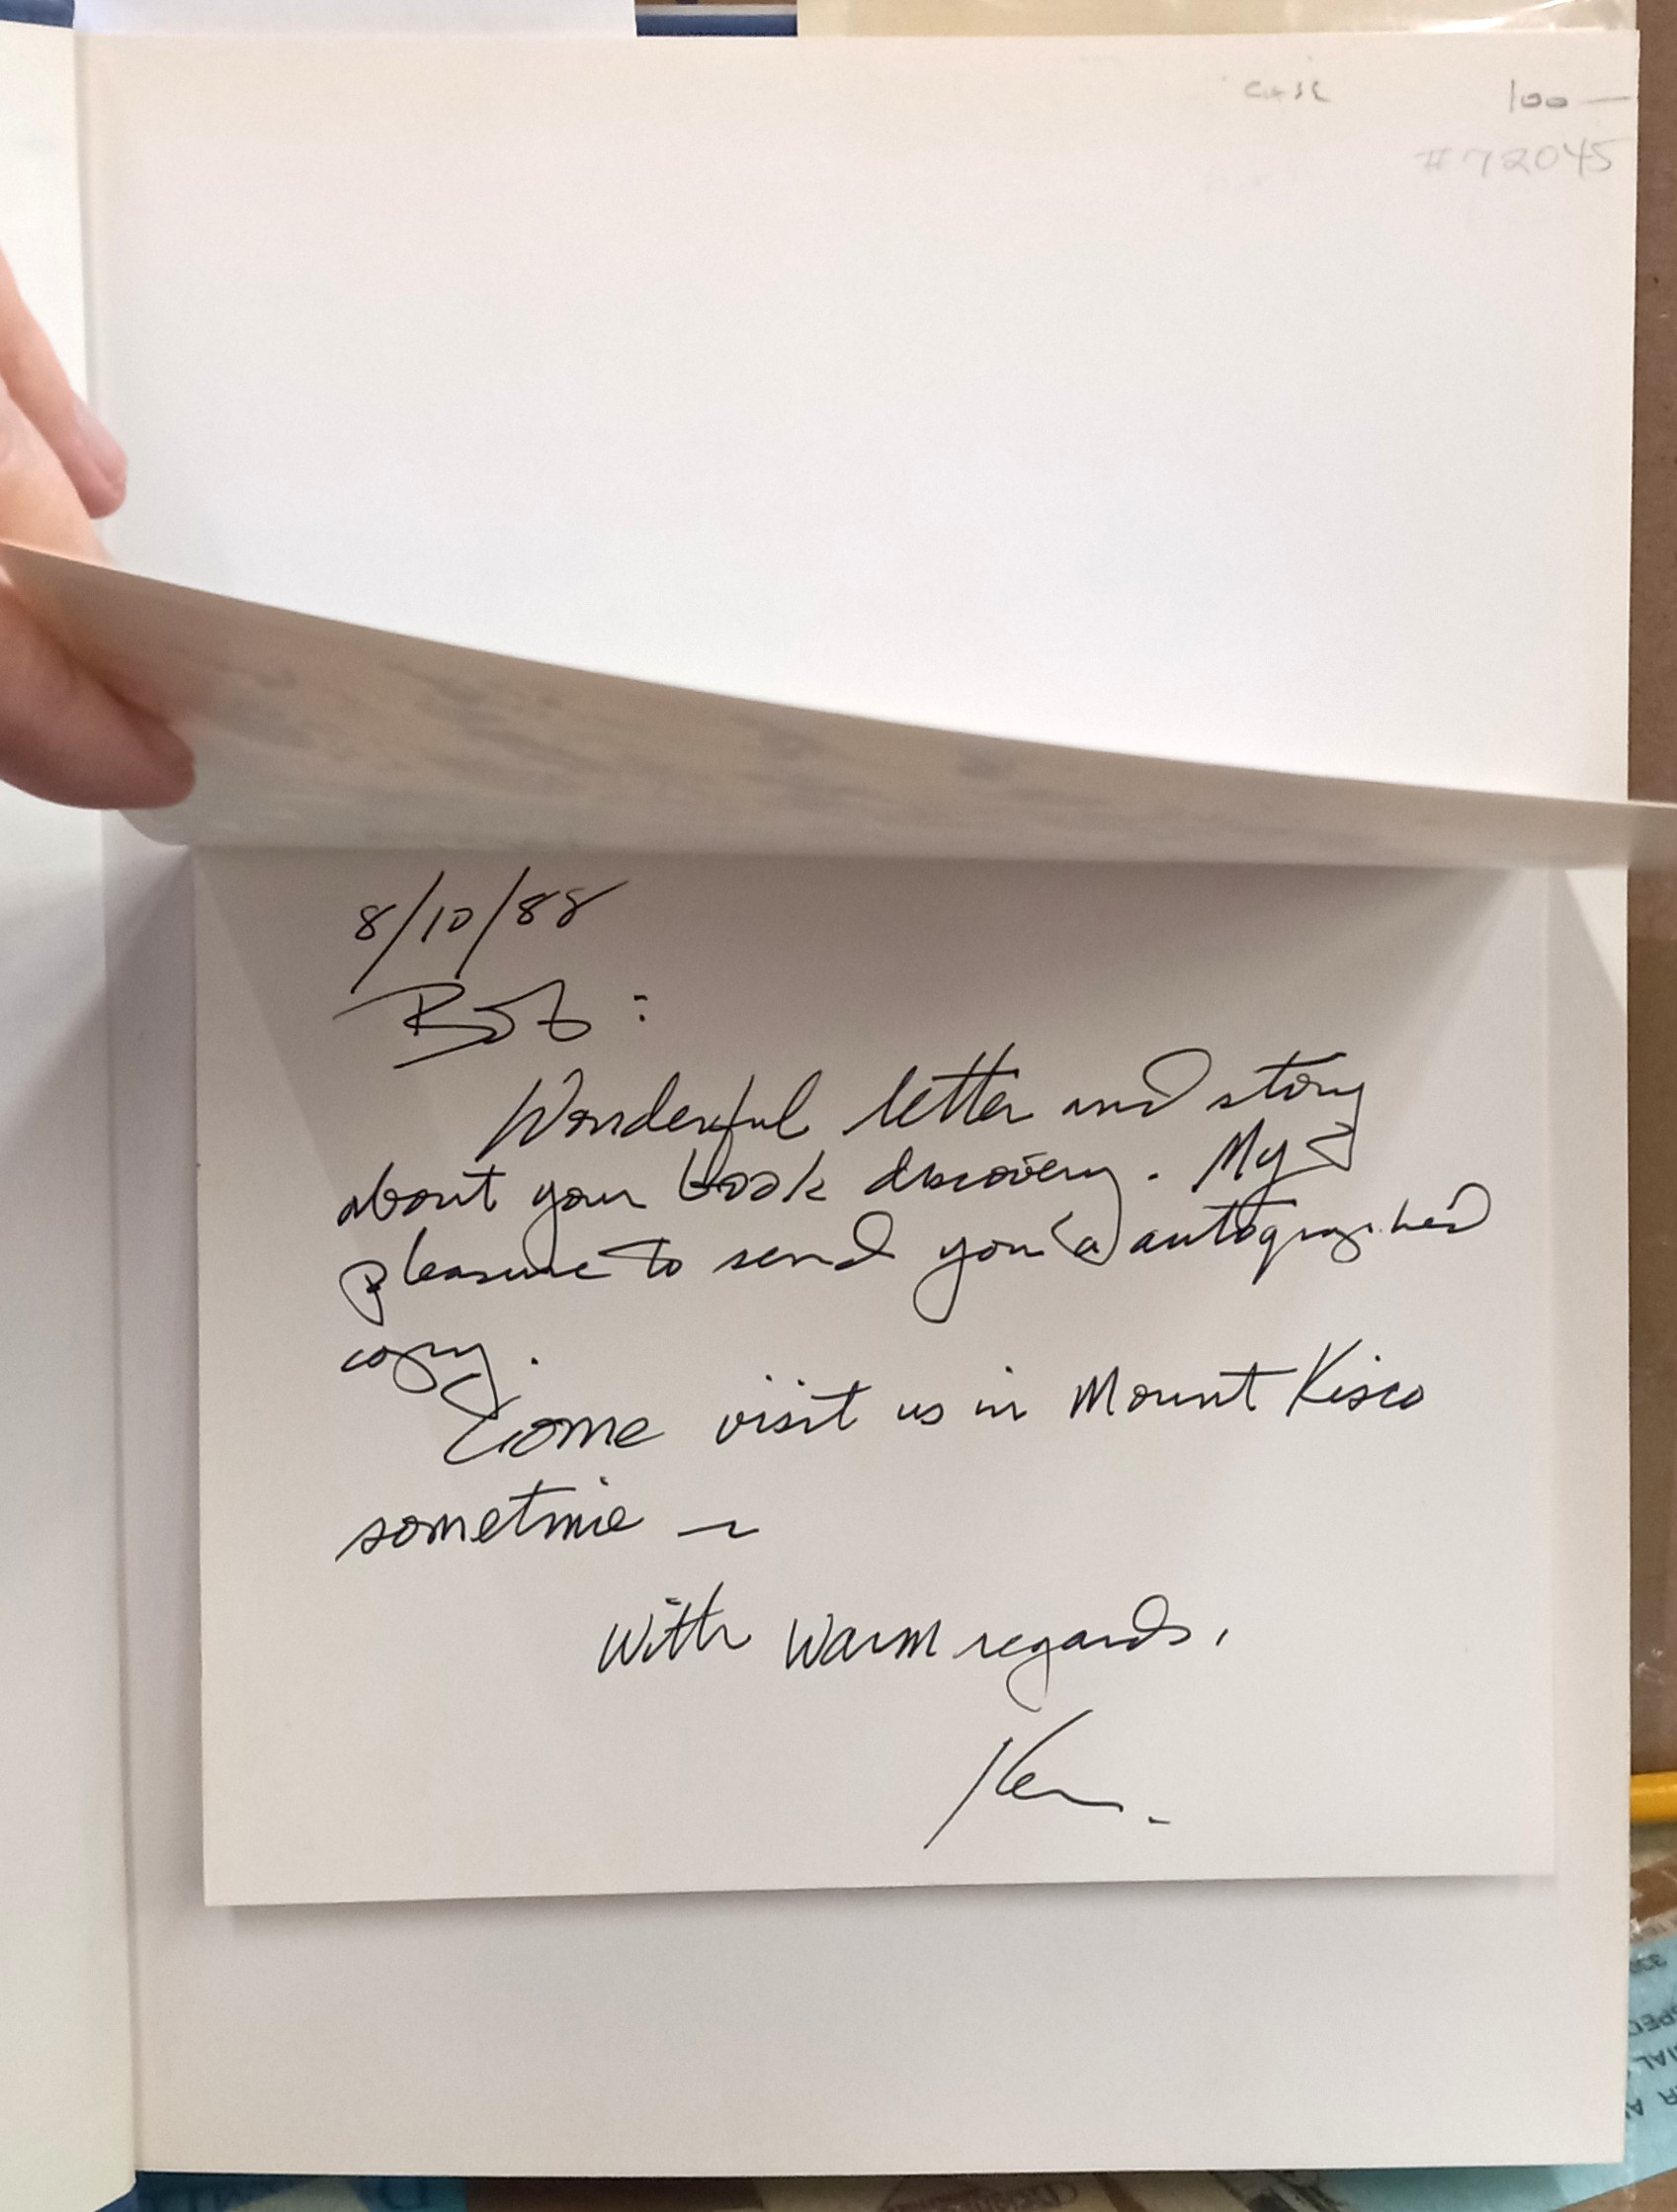 CASE 100—
#72045
8/10/88
Bob:
Wonderful letter and story
about your book discovery. My
pleasure to send you (a) autographed
copy.
Come visit us in Mount Kisco
sometime ~
With warm regards,
Ken.